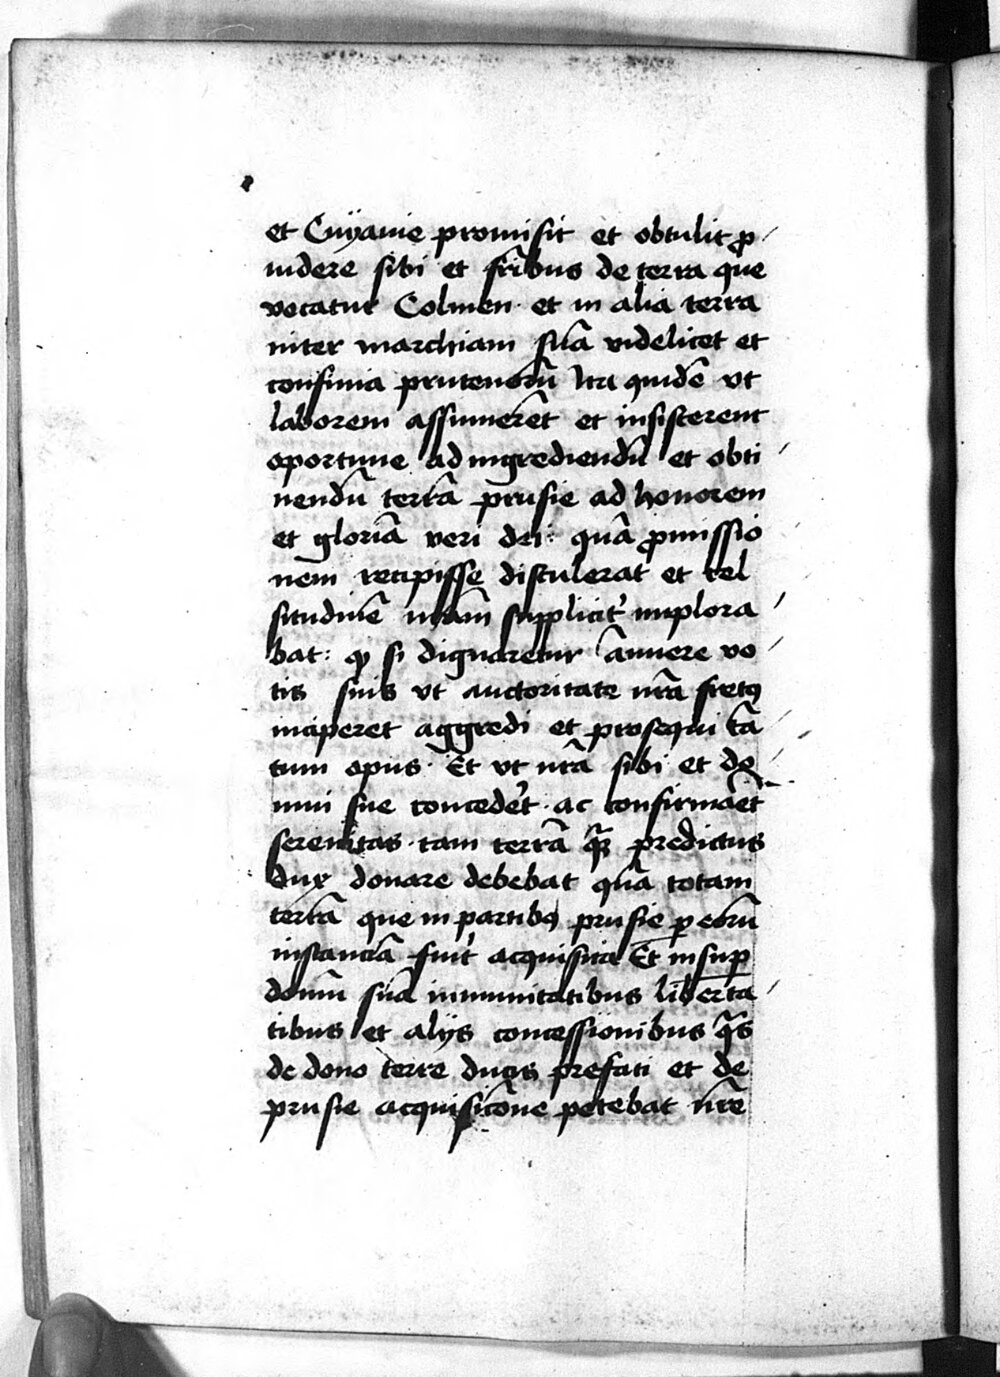 et Cuÿauie promisit et obtulit ꝓ
uidere sibi et fr̄ibus de terra que
vocatur Colmen · et in alia terra
inter marchiam suā videlicet et
confinia prutenorū Ita quidē vt
laborem assumerēt et insisterent
oportune ad ingrediendū et obti
nendū terrā prusie ad honorem
et gloriā veri dei : quā ꝓmissio
nem recepisse distulerat et cel
situdinē nr̄am suppliciť implora
bat : ꝙ si dignaretur ānuere vo
tis suis vt auctoritate nr̄a fretꝰ
inciperet aggredi et prosequi tā
tum opus · Et vt nr̄a sibi et do
mui sue concedēt ac confirmāet
serenitas tam terrā quā predictus
dux donare debebat quā totam
terrā que in partibꝰ prusie ꝑ eorū
instanciā fuīt acquisita Et insuꝑ
domū suā immunitatibus liberta
tibus et alijs concessionibus q̄s
de dono terre ducis prefati et de
prusie acquisicōne petebat nr̄e